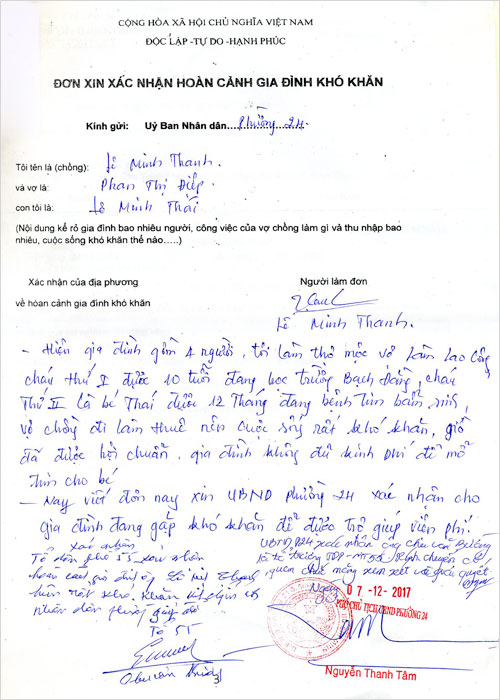 CỘNG HÒA XÃ HỘI CHỦ NGHĨA VIỆT NAM
ĐỘC LẬP -TỰ DO -HẠNH PHÚC
ĐƠN XIN XÁC NHẬN HOÀN CẢNH GIA ĐÌNH KHÓ KHĂN
Kính gửi: Uỷ Ban Nhân dân....Phường 24.
Tôi tên là (chồng): Lê Minh Thanh.
và vợ là: Phan Thị Điệp.
con tôi là: Lê Minh Thái
(Nội dung kể rõ gia đình bao nhiêu người, công việc của vợ chồng làm gì và thu nhập bao
nhiêu, cuộc sống khó khăn thế nào.....)
Xác nhận của địa phương
về hoàn cảnh gia đình khó khăn
Người làm đơn
Lê Minh Thanh.
- Hiện gia đình gồm 4 người, tôi làm thợ mộc vợ làm lao công
cháu thứ I được 10 tuổi đang học trường Bạch Đằng, cháu
thứ II là bé Thái được 12 tháng đang bệnh tim bẩm sinh,
vợ chồng đi làm thuê nên cuộc sống rất khó khăn, giờ
đã được hội chuẩn, gia đình không đủ kinh phí để mổ
tim cho bé
- Nay viết đơn nay xin UBND phường 24 xác nhận cho
gia đình đang gặp khó khăn để được trợ giúp viện phí.
Xác nhận
Tổ dân phố 55 xác nhận
hoàn cảnh gia đình
Tổ 55
UBND P24 xác nhận
Ngày 07-12-2017
PHÓ CHỦ TỊCH UBND PHƯỜNG 24
Nguyễn Thanh Tâm
3